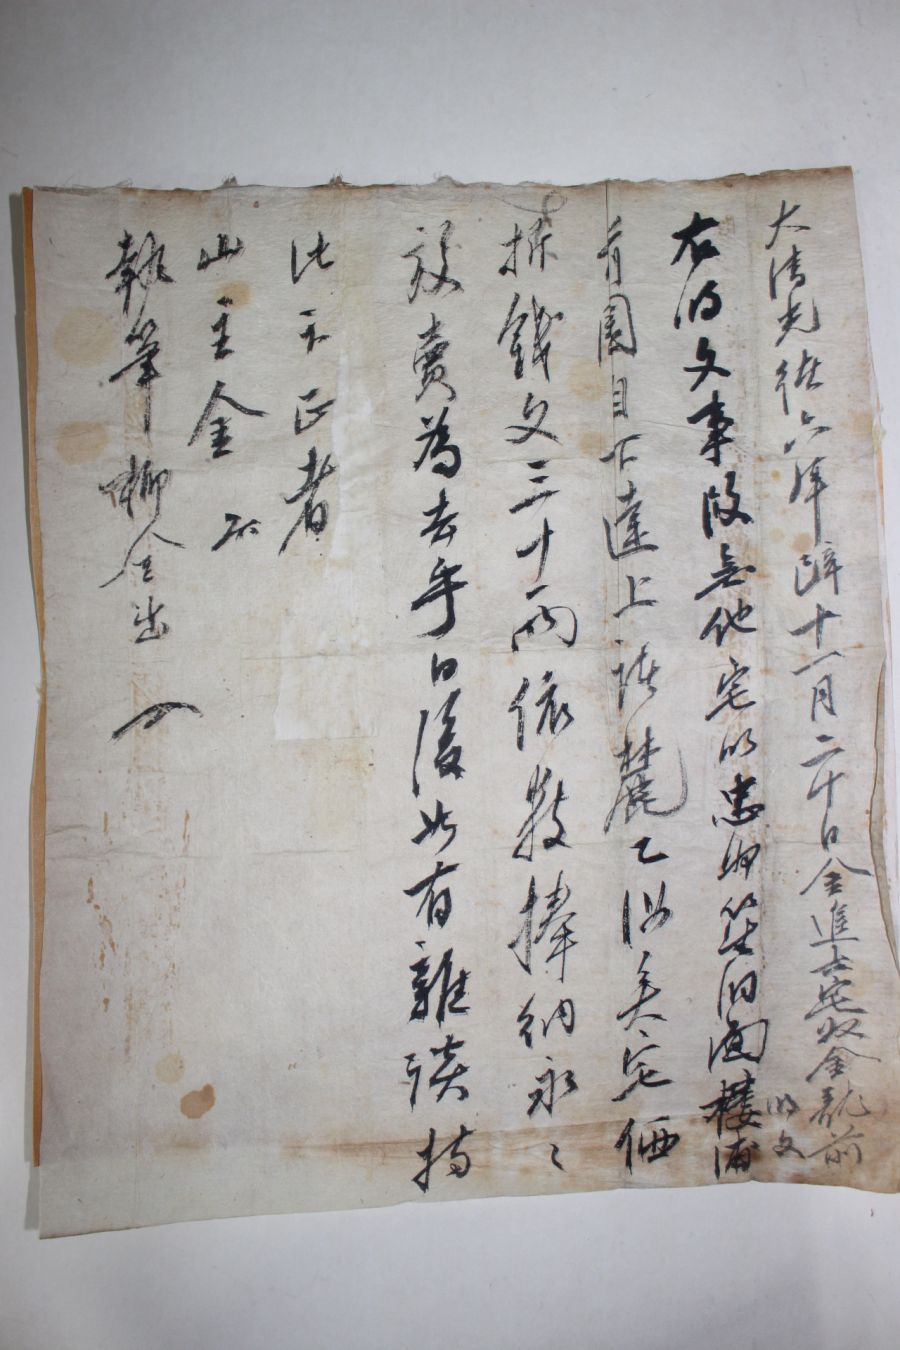 大淸光緖六年庚辰十一月二十日金進士宅奴金龍前
明文
右明文事段無他宅以忠州笠洞面樓浦
有園目下達上該麓乙沒矣宅価
折錢文三十一兩依數捧納永〻
放賣爲去乎日後如有雜談持
此卞正者
山主金
執筆柳金出